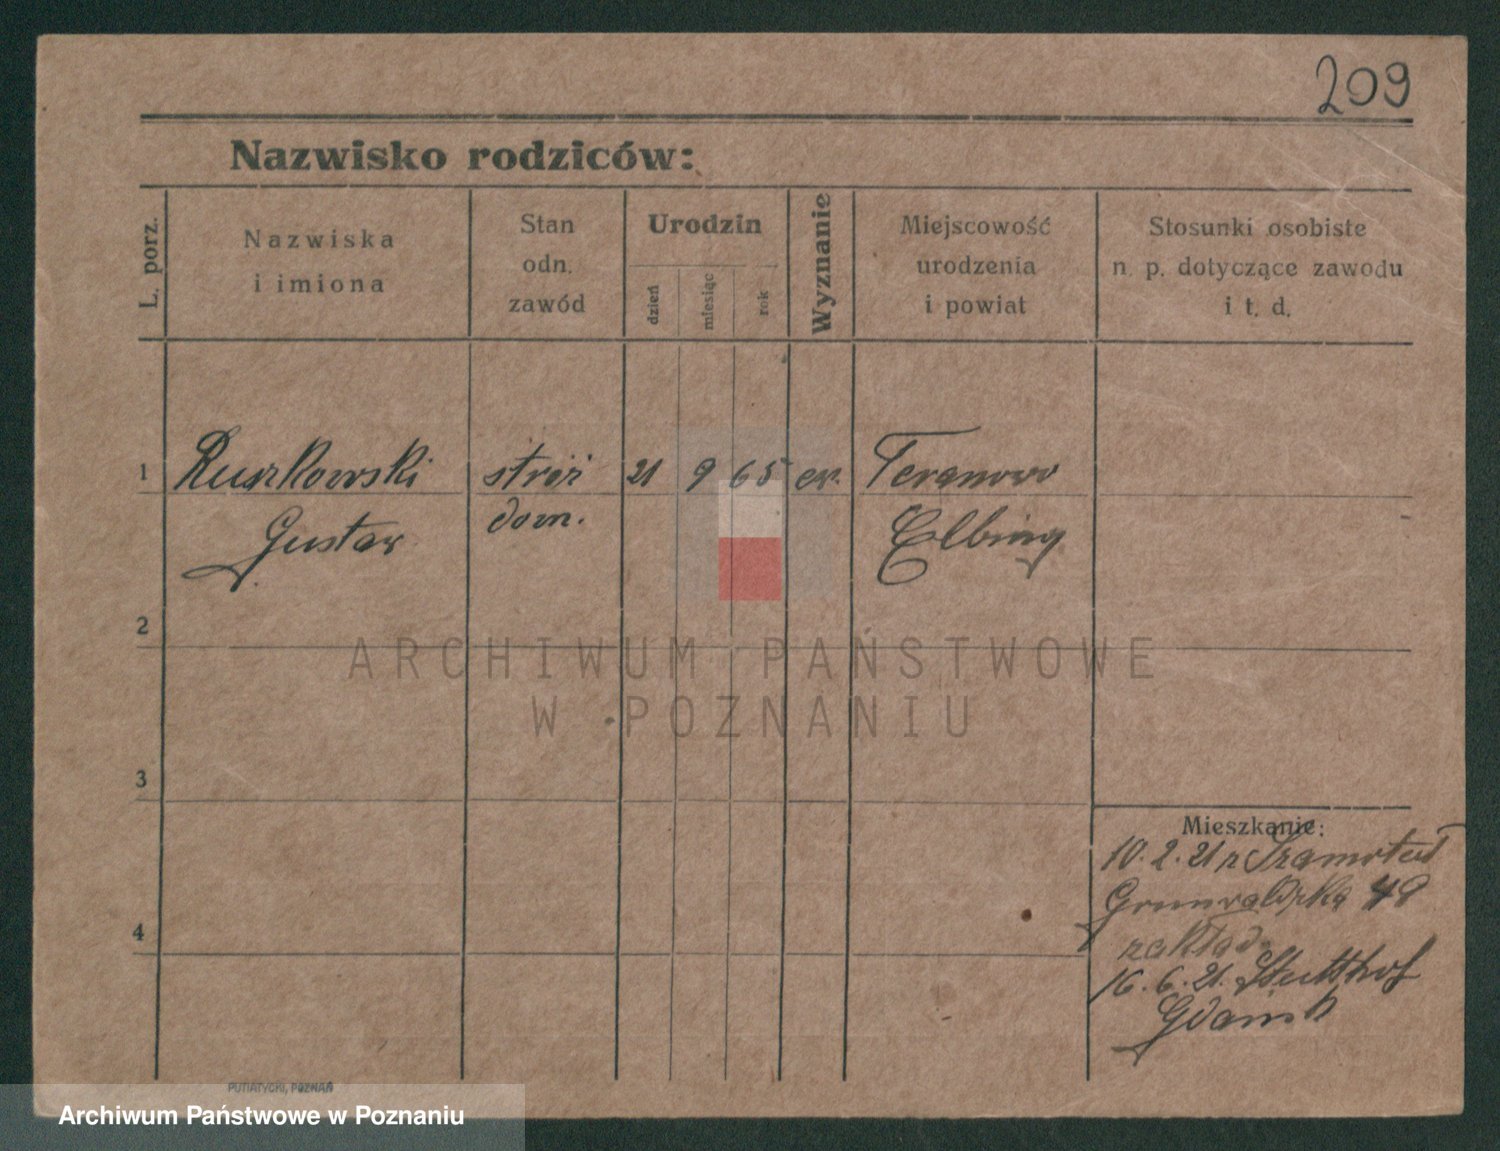 209
Nazwisko rodziców:
L. porz.
Nazwiska
i imiona
Stan
odn.
zawód
Urodzin
dzień
miesiąc
rok
Wyznanie
Miejscowość
urodzenia
i powiat
Stosunki osobiste
n. p. dotyczące zawodu
i t. d.
1 Ruszkowski stróż 21 9 65 ew. Teranowo
Gustaw dom. Elbing
2
ARCHIWUM PAŃSTWOWE
W POZNANIU
3
Mieszkanie:
10. 2. 21 z
Grunwaldzka 48
4
zakład
16. 6. 21. Stutthof
Gdańsk
PUTIATYCKI, POZNAŃ
Archiwum Państwowe w Poznaniu